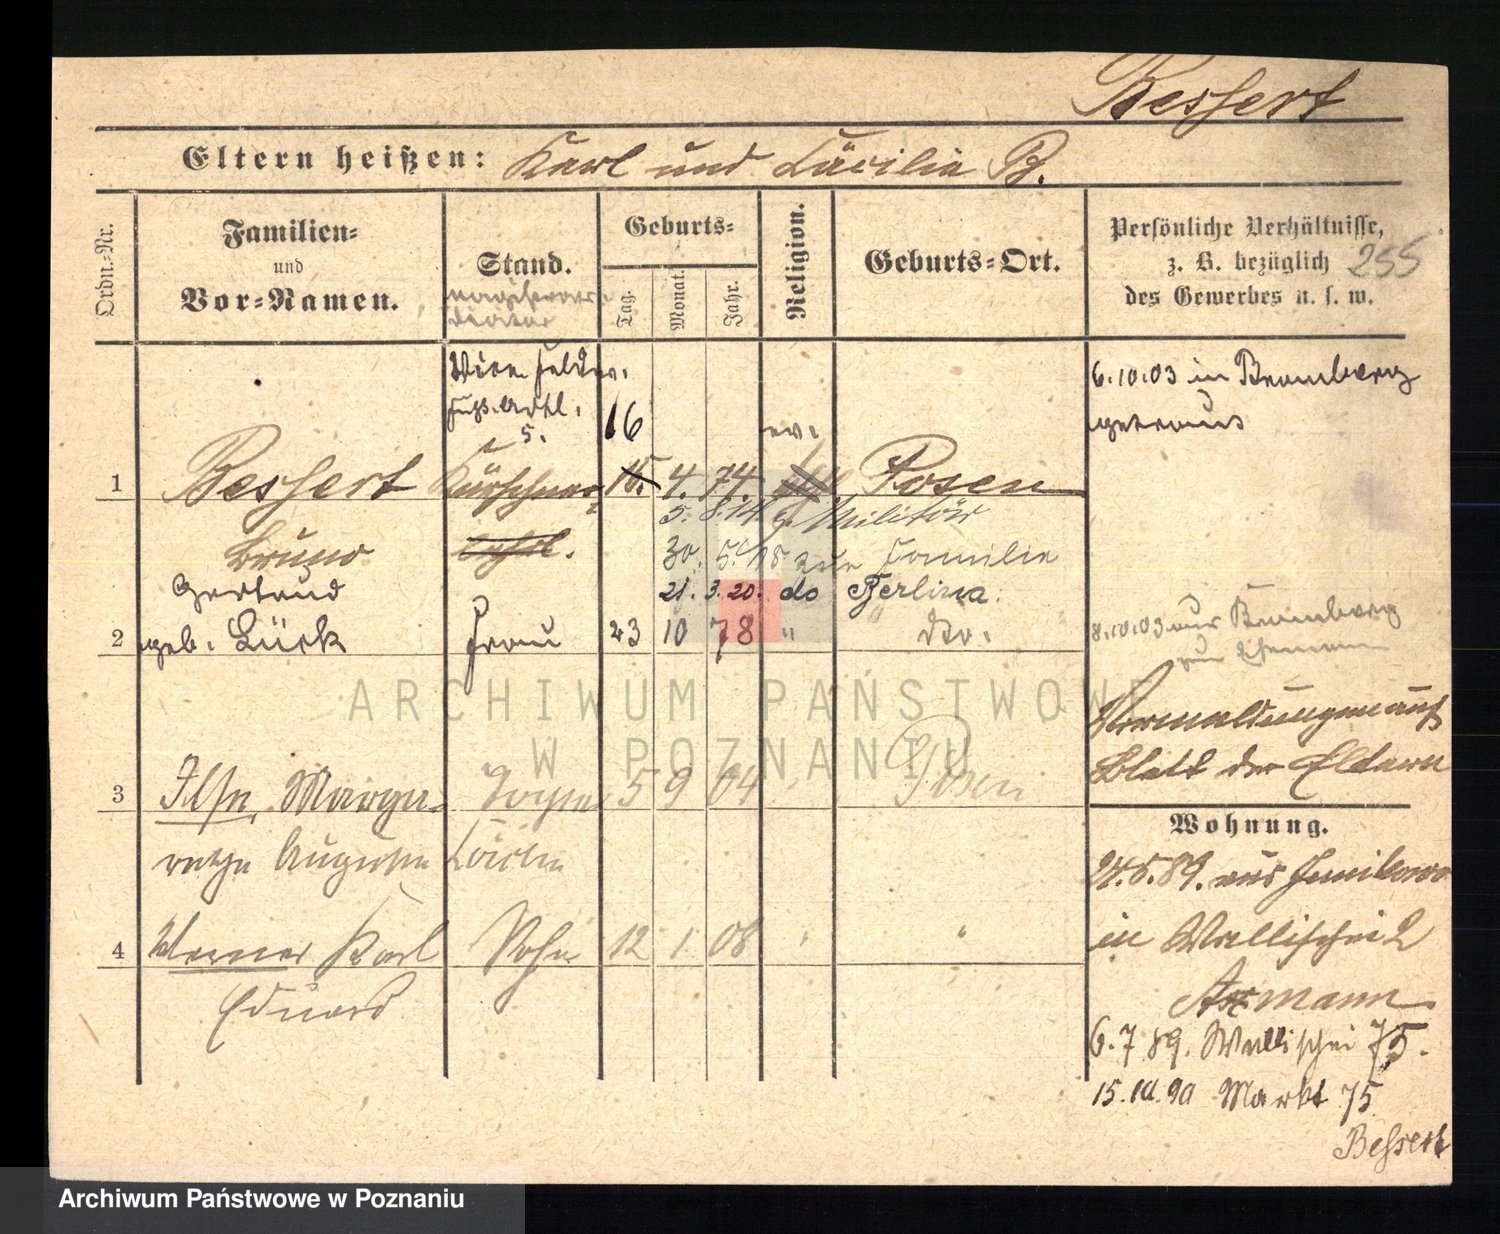 Bessert
Eltern heißen: Karl und Cäcilia B.
Ordn.-Nr.
Familien-
und
Vor-Namen.
Stand.
Geburts-
Tag.
Monat.
Jahr.
Religion.
Geburts-Ort.
Persönliche Verhältnisse,
z. B. bezüglich
des Gewerbes u. s. w.
255
6.10.03 in Bromberg
getraut
Fuß. Artl.
5.
16
ev.
1 Bessert Kürschner 15. 4. 74. Posen
Bruno
5. 8. 14 z. Militär
30. 5. 18 zur Familie
21. 3. 20. do Berlin
Gertrud
2 geb. Lück Frau 23 10 78 " do.
8.10.03 aus Bromberg
zum Ehemann
Vermeldungen auf
Blatt der Eltern
3 Ilse, Marga- 5 9 04 Posen
rethe Auguste
4 Werner Karl Sohn 12 1 08 " "
Eduard
Wohnung.
in Wallischei 2
Axmann
6.7 89. Wallischei 75.
15.10.90 Markt 75
Bessert
ARCHIWUM PAŃSTWOWE
W POZNANIU
Archiwum Państwowe w Poznaniu